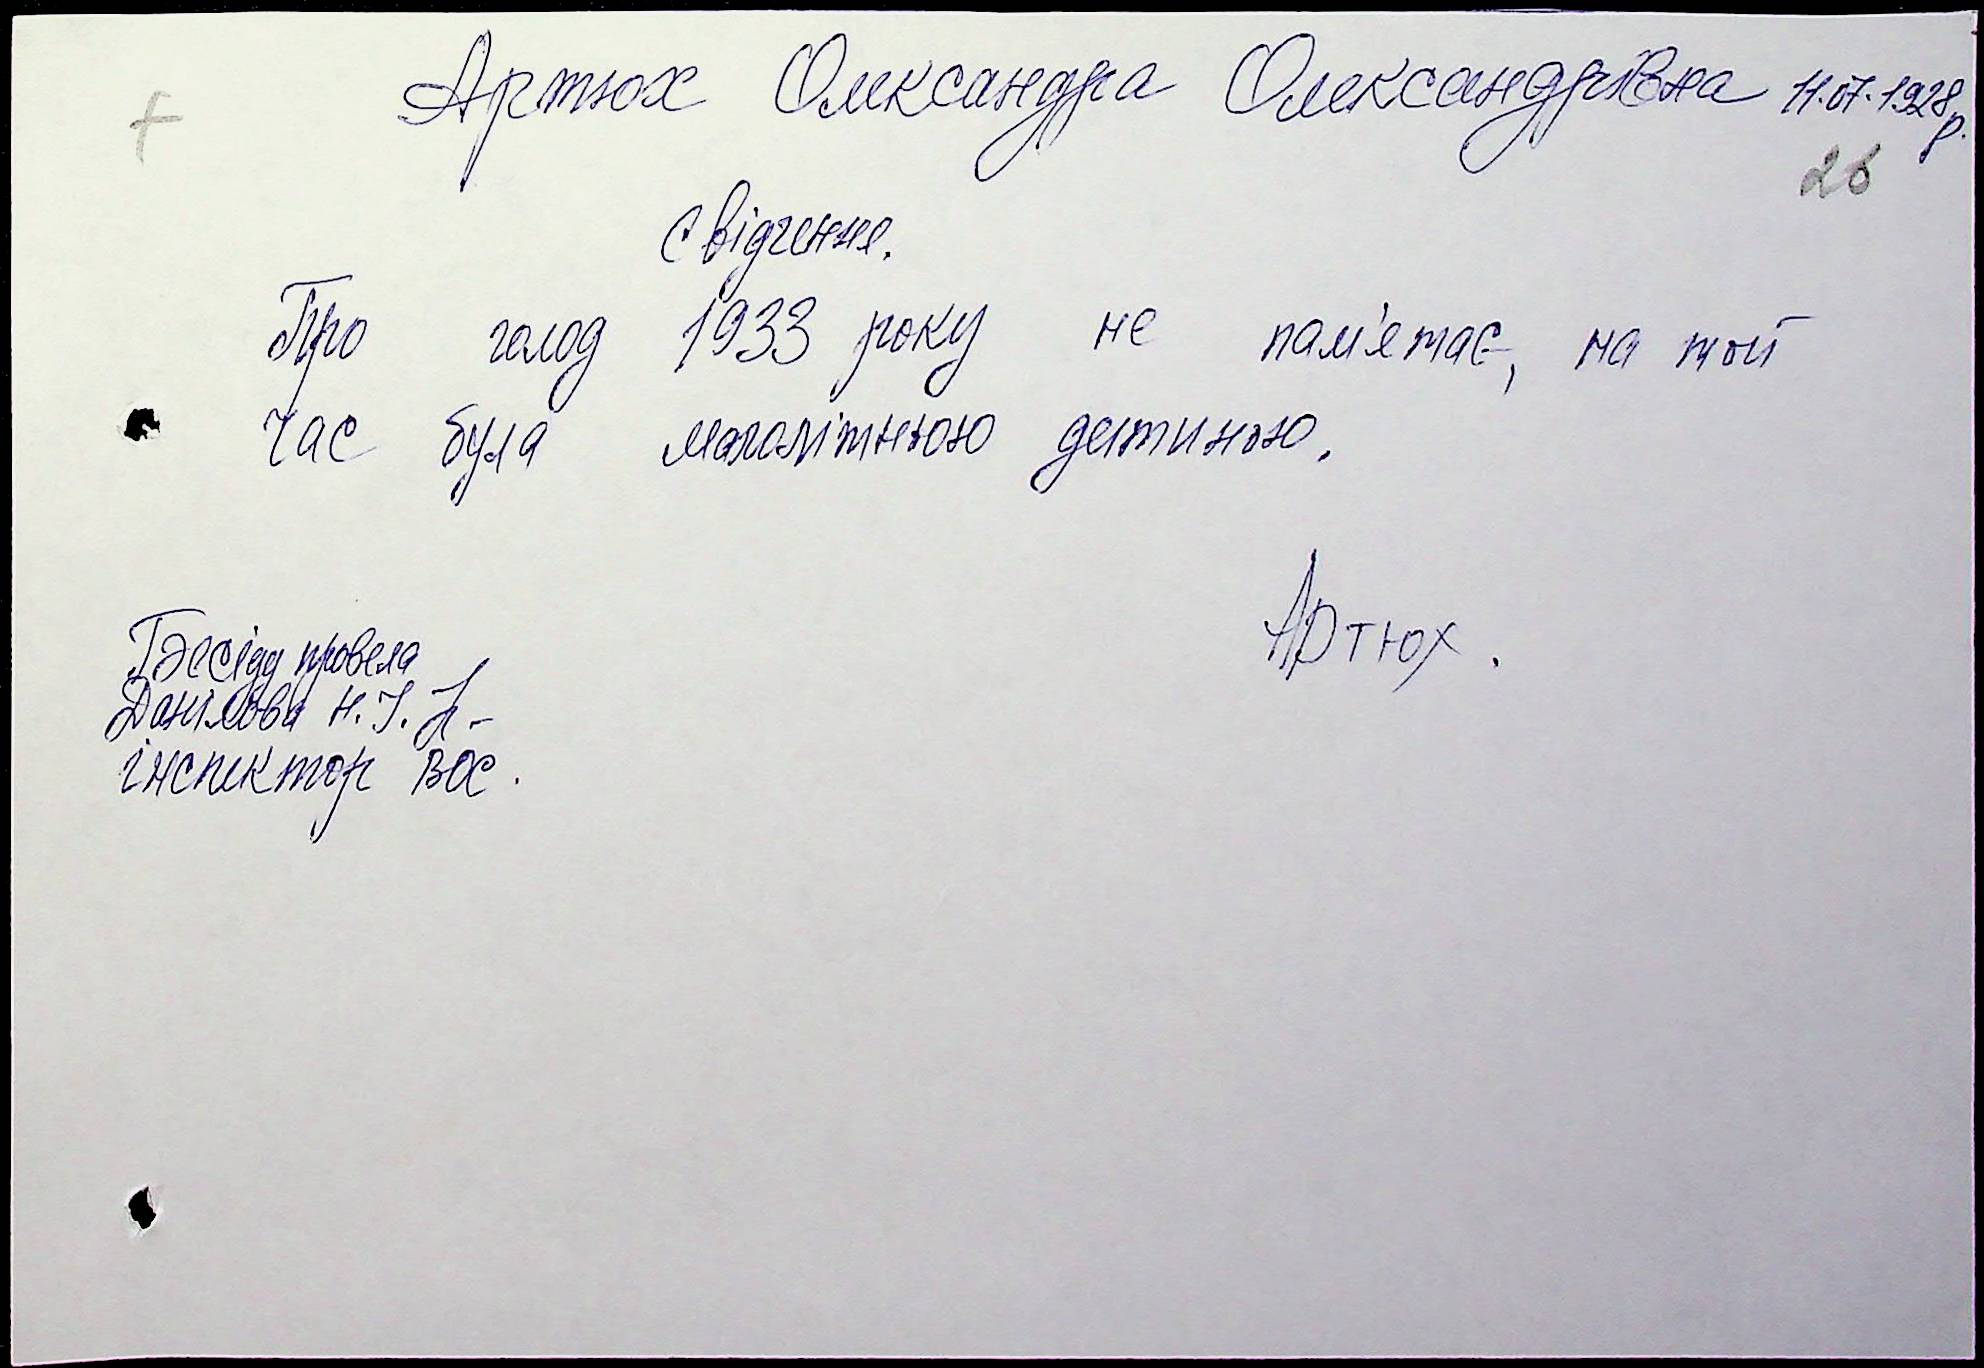 Артюх Олександра Олександрівна 11.07.1928 р.
26
свідчення.
Про голод 1933 року не пам'ятає, на той
час була малолітньою дитиною.
Артюх.
Бесіду провела
Данілова Н.І.
інспектор ВОС.